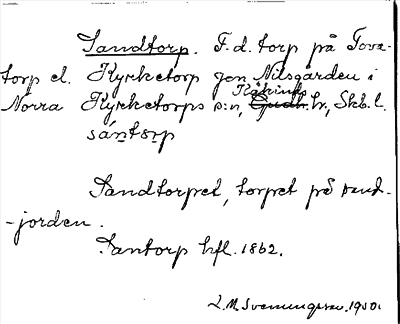 Sandtorp. F. d. torp på Tova-
torp el. Kyrketorp gen. Nilsgården i
Kåkinds
Norra Kyrketorps s:n, Gudh. hr, Skb. l.
sántorp
Sandtorpet, torpet på sand-
-jorden.
Santorp hfl. 1862.
L. M. Svenungsson. 1950.